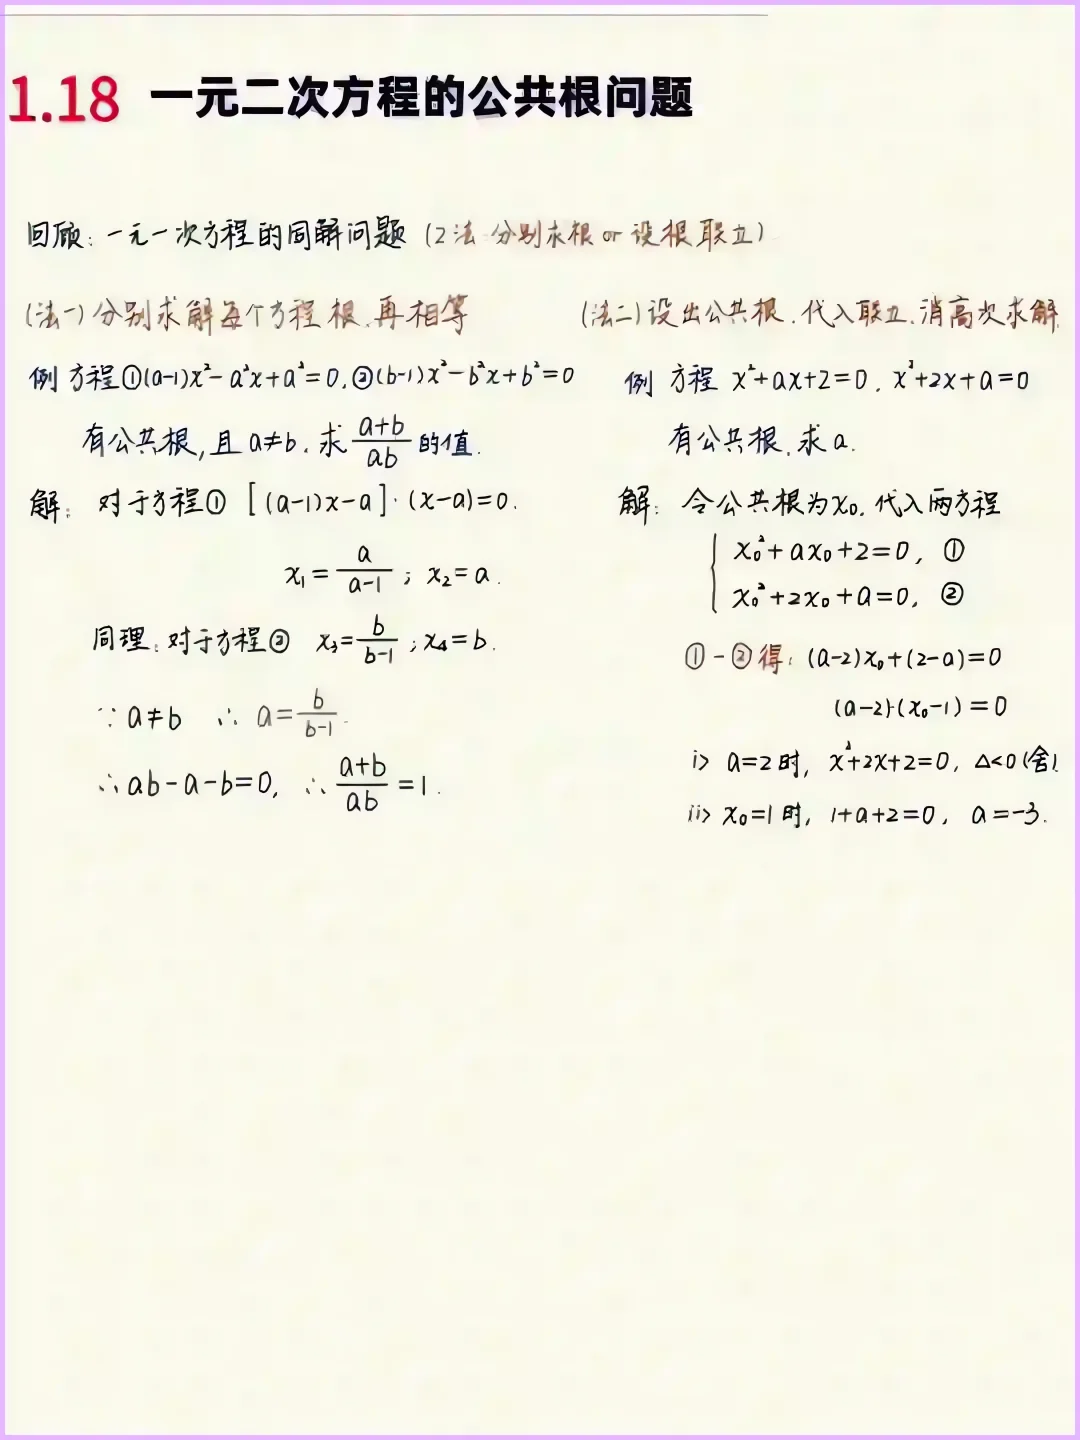 1.18 一元二次方程的公共根问题
回顾：一元一次方程的同解问题（2法 分别求根 or 设根联立）
（法一）分别求解每个方程根，再相等
例 方程①(a-1)x²-a²x+a²=0，②(b-1)x²-b²x+b²=0
有公共根，且 a≠b，求 (a+b)/(ab) 的值.
解：对于方程① [(a-1)x-a]·(x-a)=0.
x₁=a/(a-1)；x₂=a.
同理，对于方程② x₃=b/(b-1)；x₄=b.
∵ a≠b ∴ a=b/(b-1).
∴ ab-a-b=0，∴ (a+b)/(ab)=1.
（法二）设出公共根，代入联立，消高次求解
例 方程 x²+ax+2=0，x²+2x+a=0
有公共根，求 a.
解：令公共根为x₀，代入两方程
{ x₀²+ax₀+2=0，①
x₀²+2x₀+a=0，②
①-②得：(a-2)x₀+(2-a)=0
(a-2)·(x₀-1)=0
i> a=2时，x²+2x+2=0，Δ<0(舍).
ii> x₀=1时，1+a+2=0，a=-3.